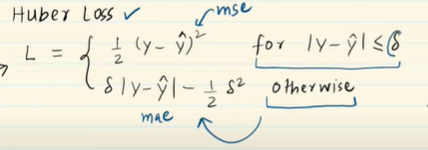 Huber Loss ✓ mse
L = { 1/2 (y - ŷ)² for |y - ŷ| ≤ δ
δ |y - ŷ| - 1/2 δ² otherwise
mae